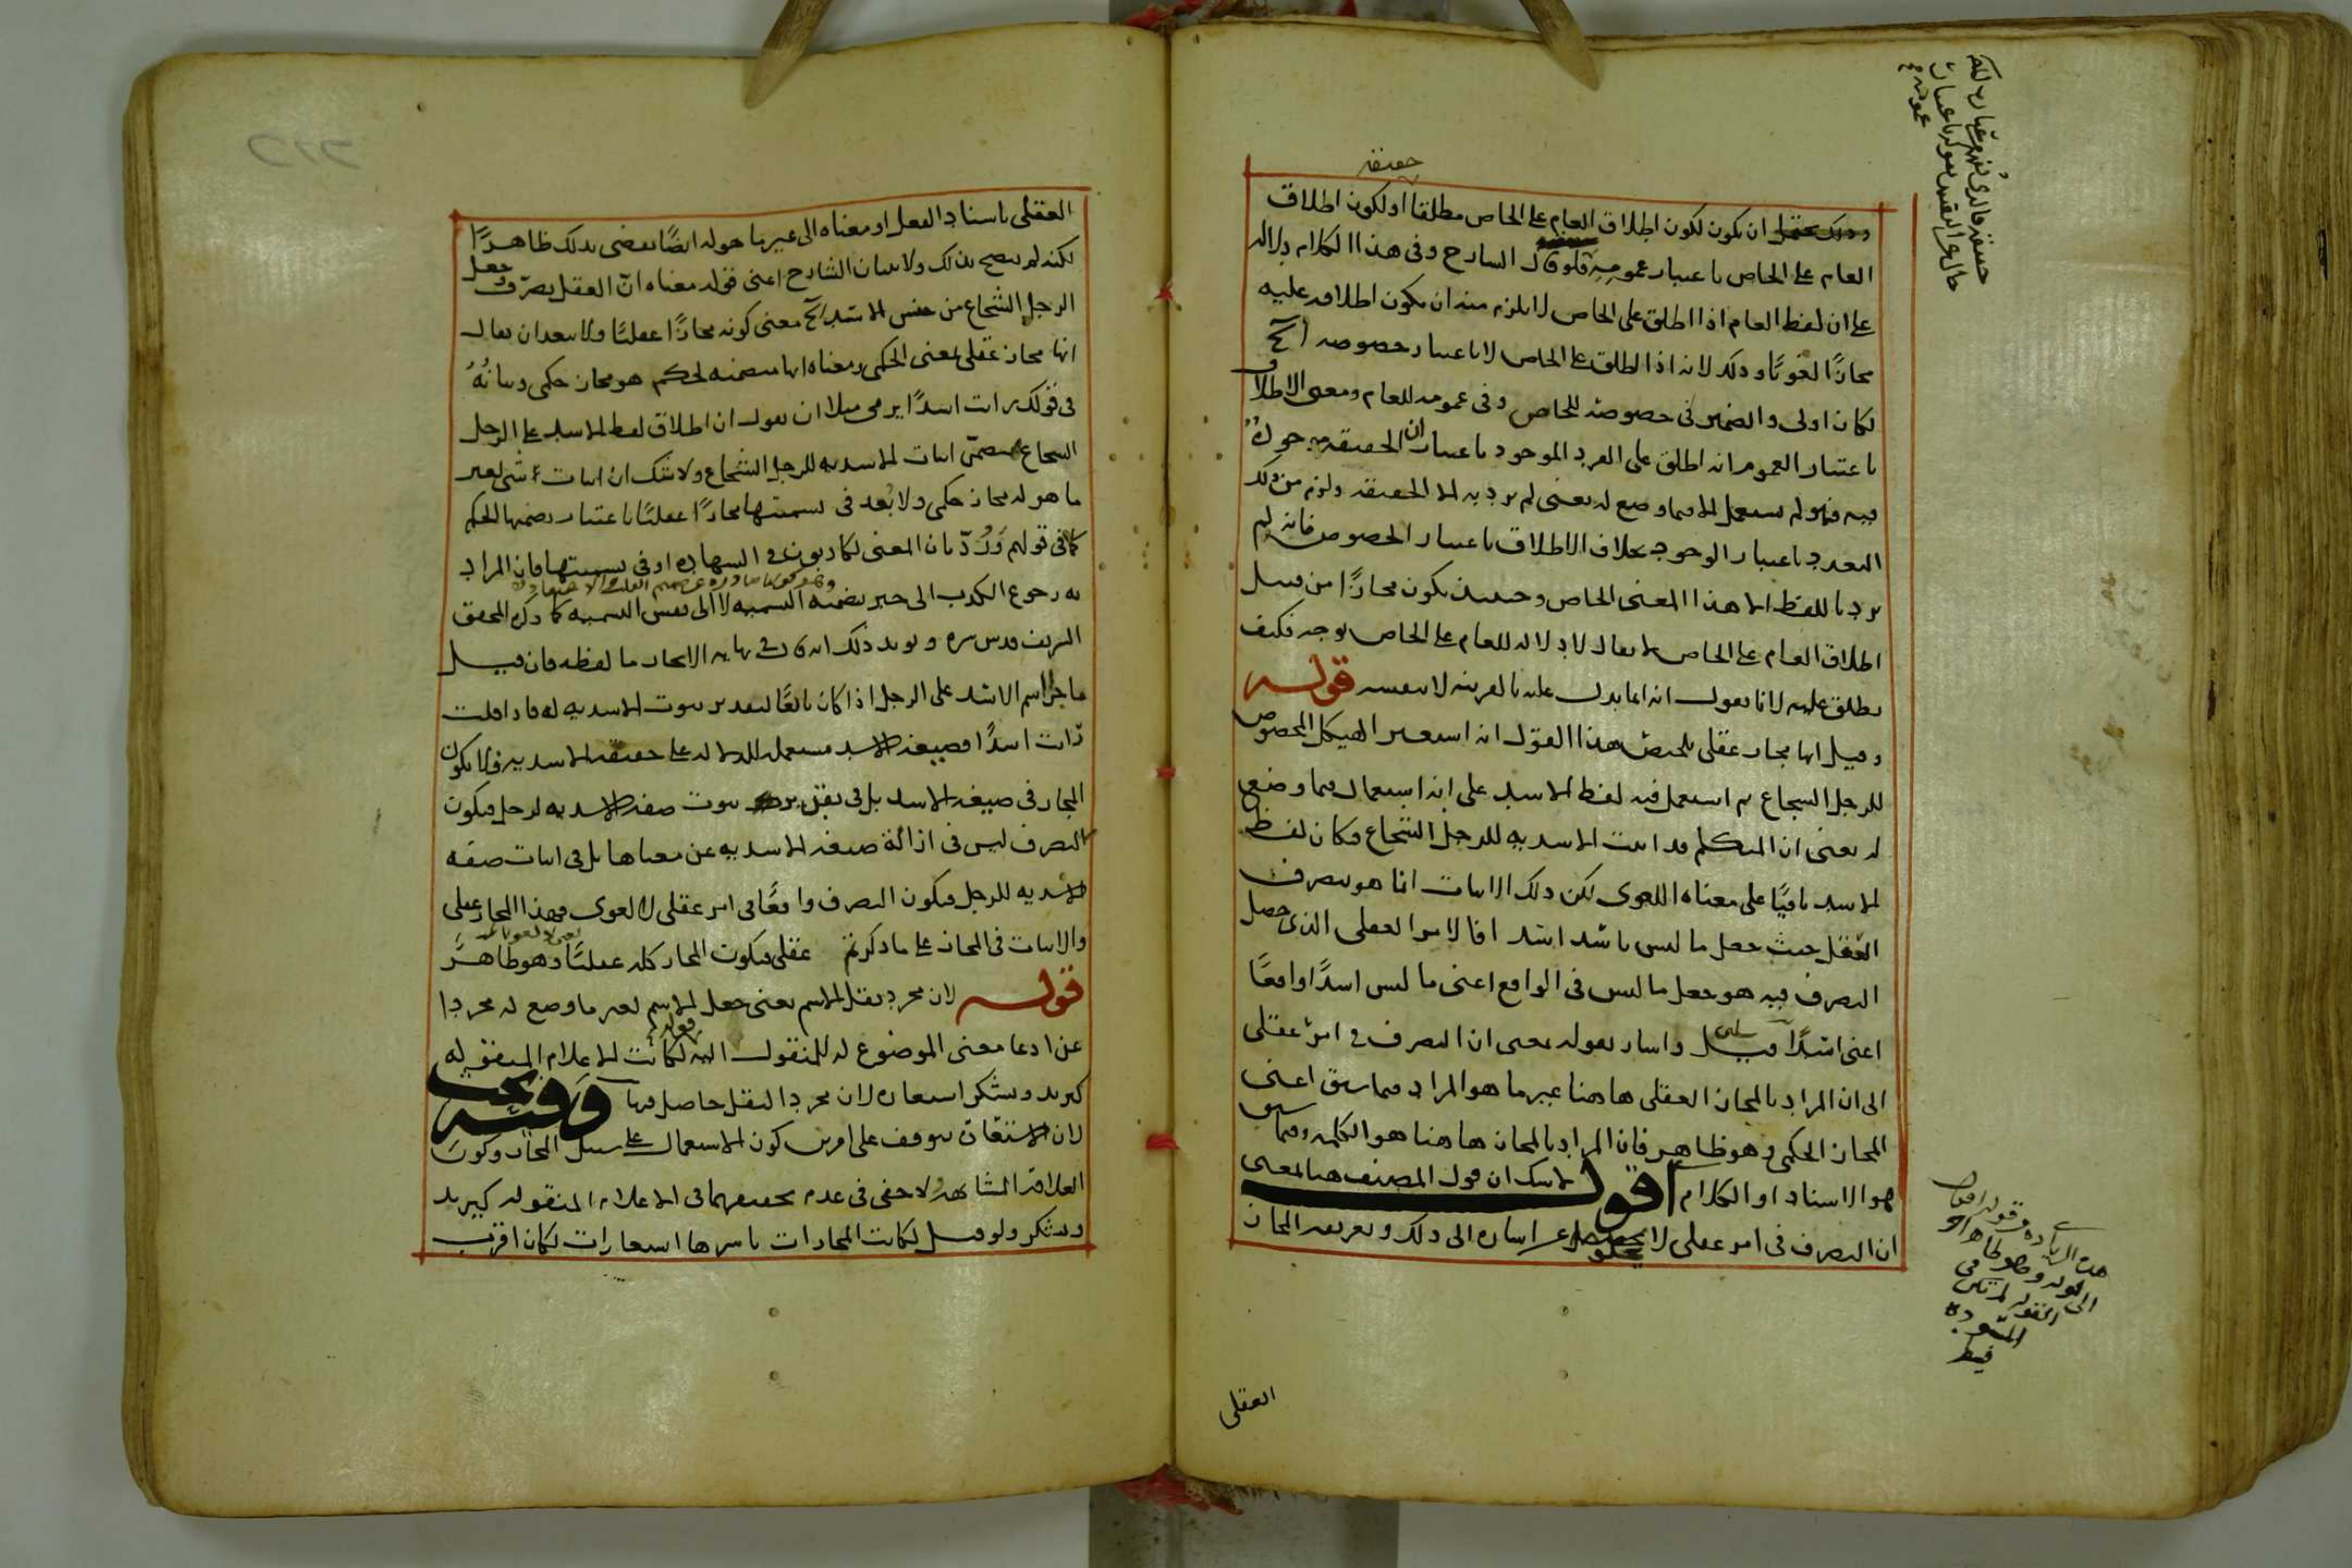 حقيقة
ان يكون لكون اطلاق العام على الخاص مطلقا او لكون اطلاق
العام على الخاص باعتبار عمومه قال الشارح وفى هذا الكلام دلالة
على ان لفظ العام اذا اطلق على الخاص لا يلزم منه ان يكون اطلاقه عليه
مجازًا لغويًا وذلك لانه اذا اطلق على الخاص لا باعتبار خصوصه
لكان اولى والضمير فى خصوصه للخاص وفى عمومه للعام ومعنى الاطلاق
باعتبار العموم انه اطلق على الفرد الموجود باعتبار ان الحقيقة موجودة
فيه فهو لم يستعمل الا فيما وضع له يعنى لم يرد به الا الحقيقة ولزم من ذلك
التعدد باعتبار الوجود بخلاف الاطلاق باعتبار الخصوص فانه لم
يرد باللفظ الا هذا المعنى الخاص وحينئذ يكون مجازًا من قبيل
اطلاق العام على الخاص لا يقال لا دلالة للعام على الخاص بوجه فكيف
يطلق عليه لانا نقول انه انما يدل عليه بالقرينة لا بنفسه قوله
وقيل انها مجاز عقلى تلخيص هذا القول انه استعير الهيكل المخصوص
للرجل الشجاع ثم استعمل فيه لفظ الاسد على انه استعمال فيما وضع
له يعنى ان المتكلم قد اثبت الاسدية للرجل الشجاع فكان لفظ
الاسد باقيًا على معناه اللغوى لكن ذلك الاثبات انما هو بتصرف
العقل حيث جعل ما ليس باسد اسدا فالامر العقلى الذى حصل
التصرف فيه هو جعل ما ليس فى الواقع اعنى ما ليس اسدًا واقعًا
اعنى اسدًا واشار بقوله بمعنى ان التصرف فى امر عقلى
الى ان المراد بالمجاز العقلى هاهنا غير ما هو المراد فيما سبق اعنى
المجاز الحكمى وهو ظاهر فان المراد بالمجاز هاهنا هو الكلمة وفيما سبق
هو الاسناد او الكلام اقول لا شك ان قول المصنف هنا بمعنى
ان التصرف فى امر عقلى لا يخلو عن اشارة الى ذلك وتعريف المجاز
العقلى
العقلى باسناد الفعل او معناه الى غير ما هو له ايضًا يقضى بذلك ظاهرًا
لكنه لم يصح بذلك ولا بيان الشارح اعنى قوله معناه انّ العقل تصرّف وجعل
الرجل الشجاع من جنس الاسد معنى كونه مجازًا عقليًا ولا يبعد ان يقال
انها مجاز عقلى بمعنى الحكمى ومعناه انها متضمنة لحكم هو مجاز حكمى وبيانهُ
فى قولك رايت اسدًا يرمى مثلا ان نقول ان اطلاق لفظ الاسد على الرجل
الشجاع يتضمّن اثبات الاسدية للرجل الشجاع ولا شك ان اثبات شئ لغير
ما هو له مجاز حكمى ولا بُعد فى تسميتها مجازًا عقليًا باعتبار تضمنها الحكم
كما فى قولهم وَرُدّ بان المعنى لكاذبون فى الشهادة او فى تسميتها فان المراد
به رجوع الكذب الى خبر تضمنه التسمية لا الى نفس التسمية كما ذكره المحقق
الشريف قدس سره ويؤيد ذلك انه قال فى نهاية الايجاز ما لفظه فان قيل
ما جرا اسم الاسد على الرجل اذا كان تابعًا لتقدير ثبوت الاسدية له فاذا قلت
رايت اسدًا فصيغة الاسد مستعملة للدلالة على حقيقة الاسدية فلا يكون
المجاز فى صيغة الاسد بل فى تقدير ثبوت صفة الاسدية لرجل فيكون
التصرف ليس فى ازالة صيغة الاسدية عن معناها بل فى اثبات صفة
الاسدية للرجل فيكون التصرف واقعًا فى امر عقلى لا لغوى فهذا المجاز عقلى
والاثبات فى المجاز على ما ذكرتم عقلى فيكون المجاز كله عقليًا وهو ظاهر
قوله لان مجرد نقل الاسم يعنى جعل الاسم لغير ما وضع له مجردا
عن ادعا معنى الموضوع له للمنقول اليه قوله لكانت الاعلام المنقولة
كيزيد ويشكر استعارة لان مجرد النقل حاصل فيها وفيه بحث
لان الاستعارة يتوقف على امرين كون الاستعمال على سبيل المجاز وكون
العلاقة المشابهة ولا خفى فى عدم تحققهما فى الاعلام المنقولة كيزيد
ويشكر ولو قيل لكانت المجازات باسرها استعارات لكان اقرب